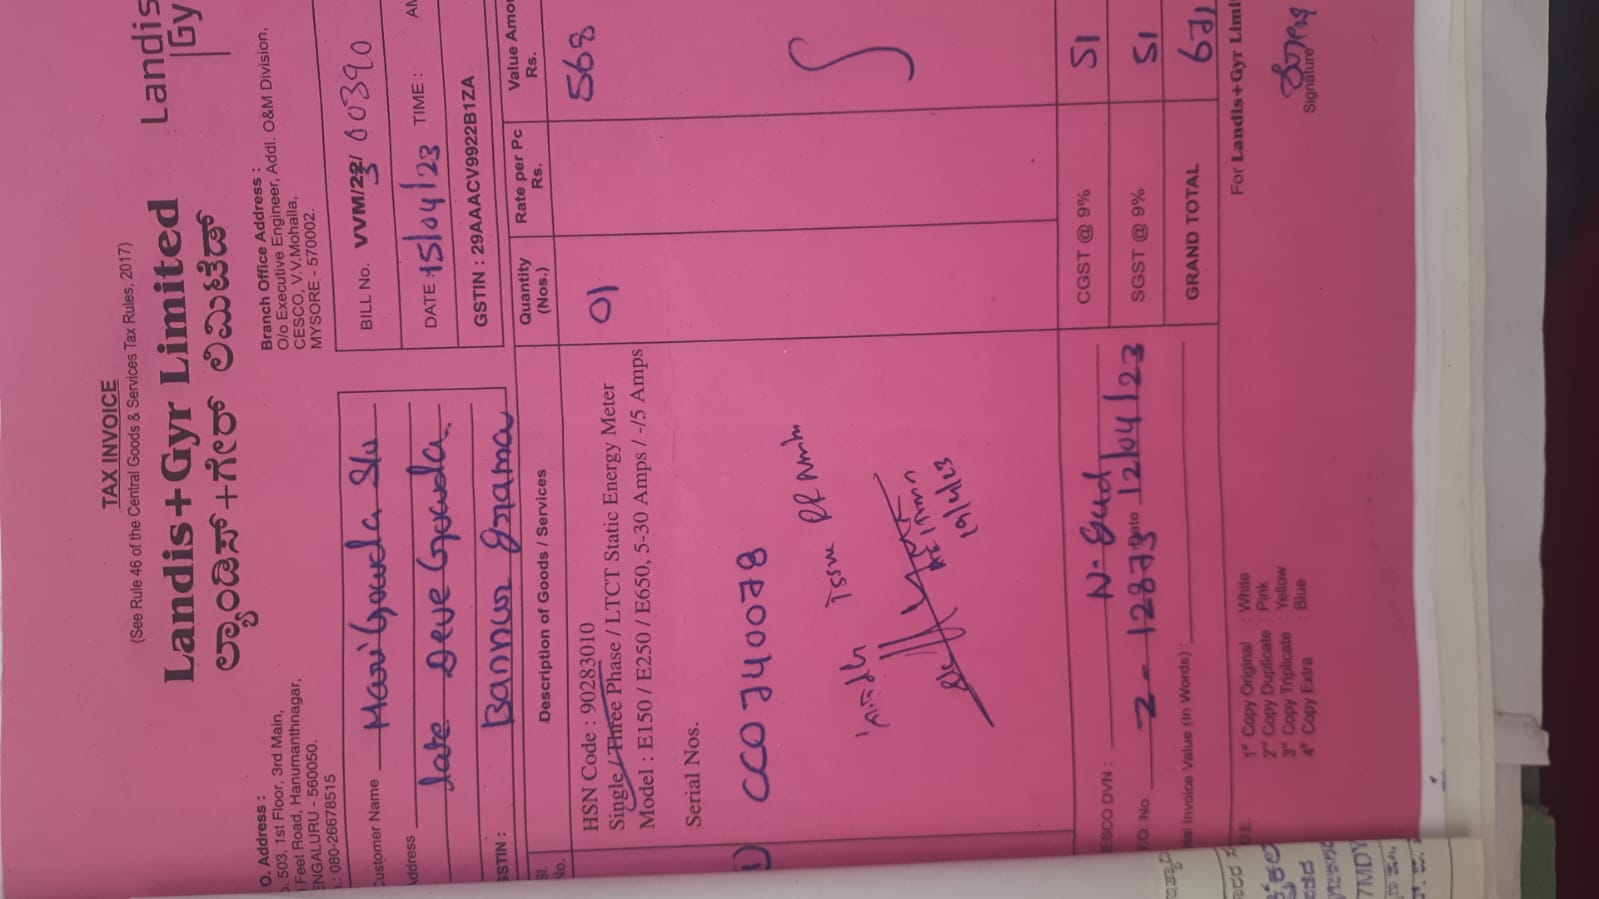 TAX INVOICE
(See Rule 46 of the Central Goods & Services Tax Rules, 2017)
Landis+Gyr Limited
ಲ್ಯಾಂಡಿಸ್+ಗೇರ್ ಲಿಮಿಟೆಡ್
Landis
Gy
O. Address :
503, 1st Floor, 3rd Main,
Feet Road, Hanumanthnagar,
ENGALURU - 5600050.
: 080-26678515
Branch Office Address :
O/o Executive Engineer, Addl. O&M Division,
CESCO, V.V.Mohalla,
MYSORE - 570002.
Customer Name Mari Gowda S/o
Address late Deve Gowda.
GSTIN : Bannur Grama
BILL No. VVM/22/ 3 00390
DATE : 15/04/23 TIME : AM
GSTIN : 29AAACV9922B1ZA
Sl. No. Description of Goods / Services Quantity (Nos.) Rate per Pc Rs. Value Amou Rs.
HSN Code : 90283010
Single / Three Phase / LTCT Static Energy Meter 01 568
Model : E150 / E250 / E650, 5-30 Amps / -/5 Amps
Serial Nos.
1) CC0740078
Issue RR
19/4/23
CGST @ 9% 51
SGST @ 9% 51
GRAND TOTAL 671
ESCO DVN :
No. 2 - 12875 Date 12/04/23
Invoice Value (In Words) :
For Landis+Gyr Limi
Signature
1st Copy Original : White
2nd Copy Duplicate : Pink
3rd Copy Triplicate : Yellow
4th Copy Extra : Blue
7MDY